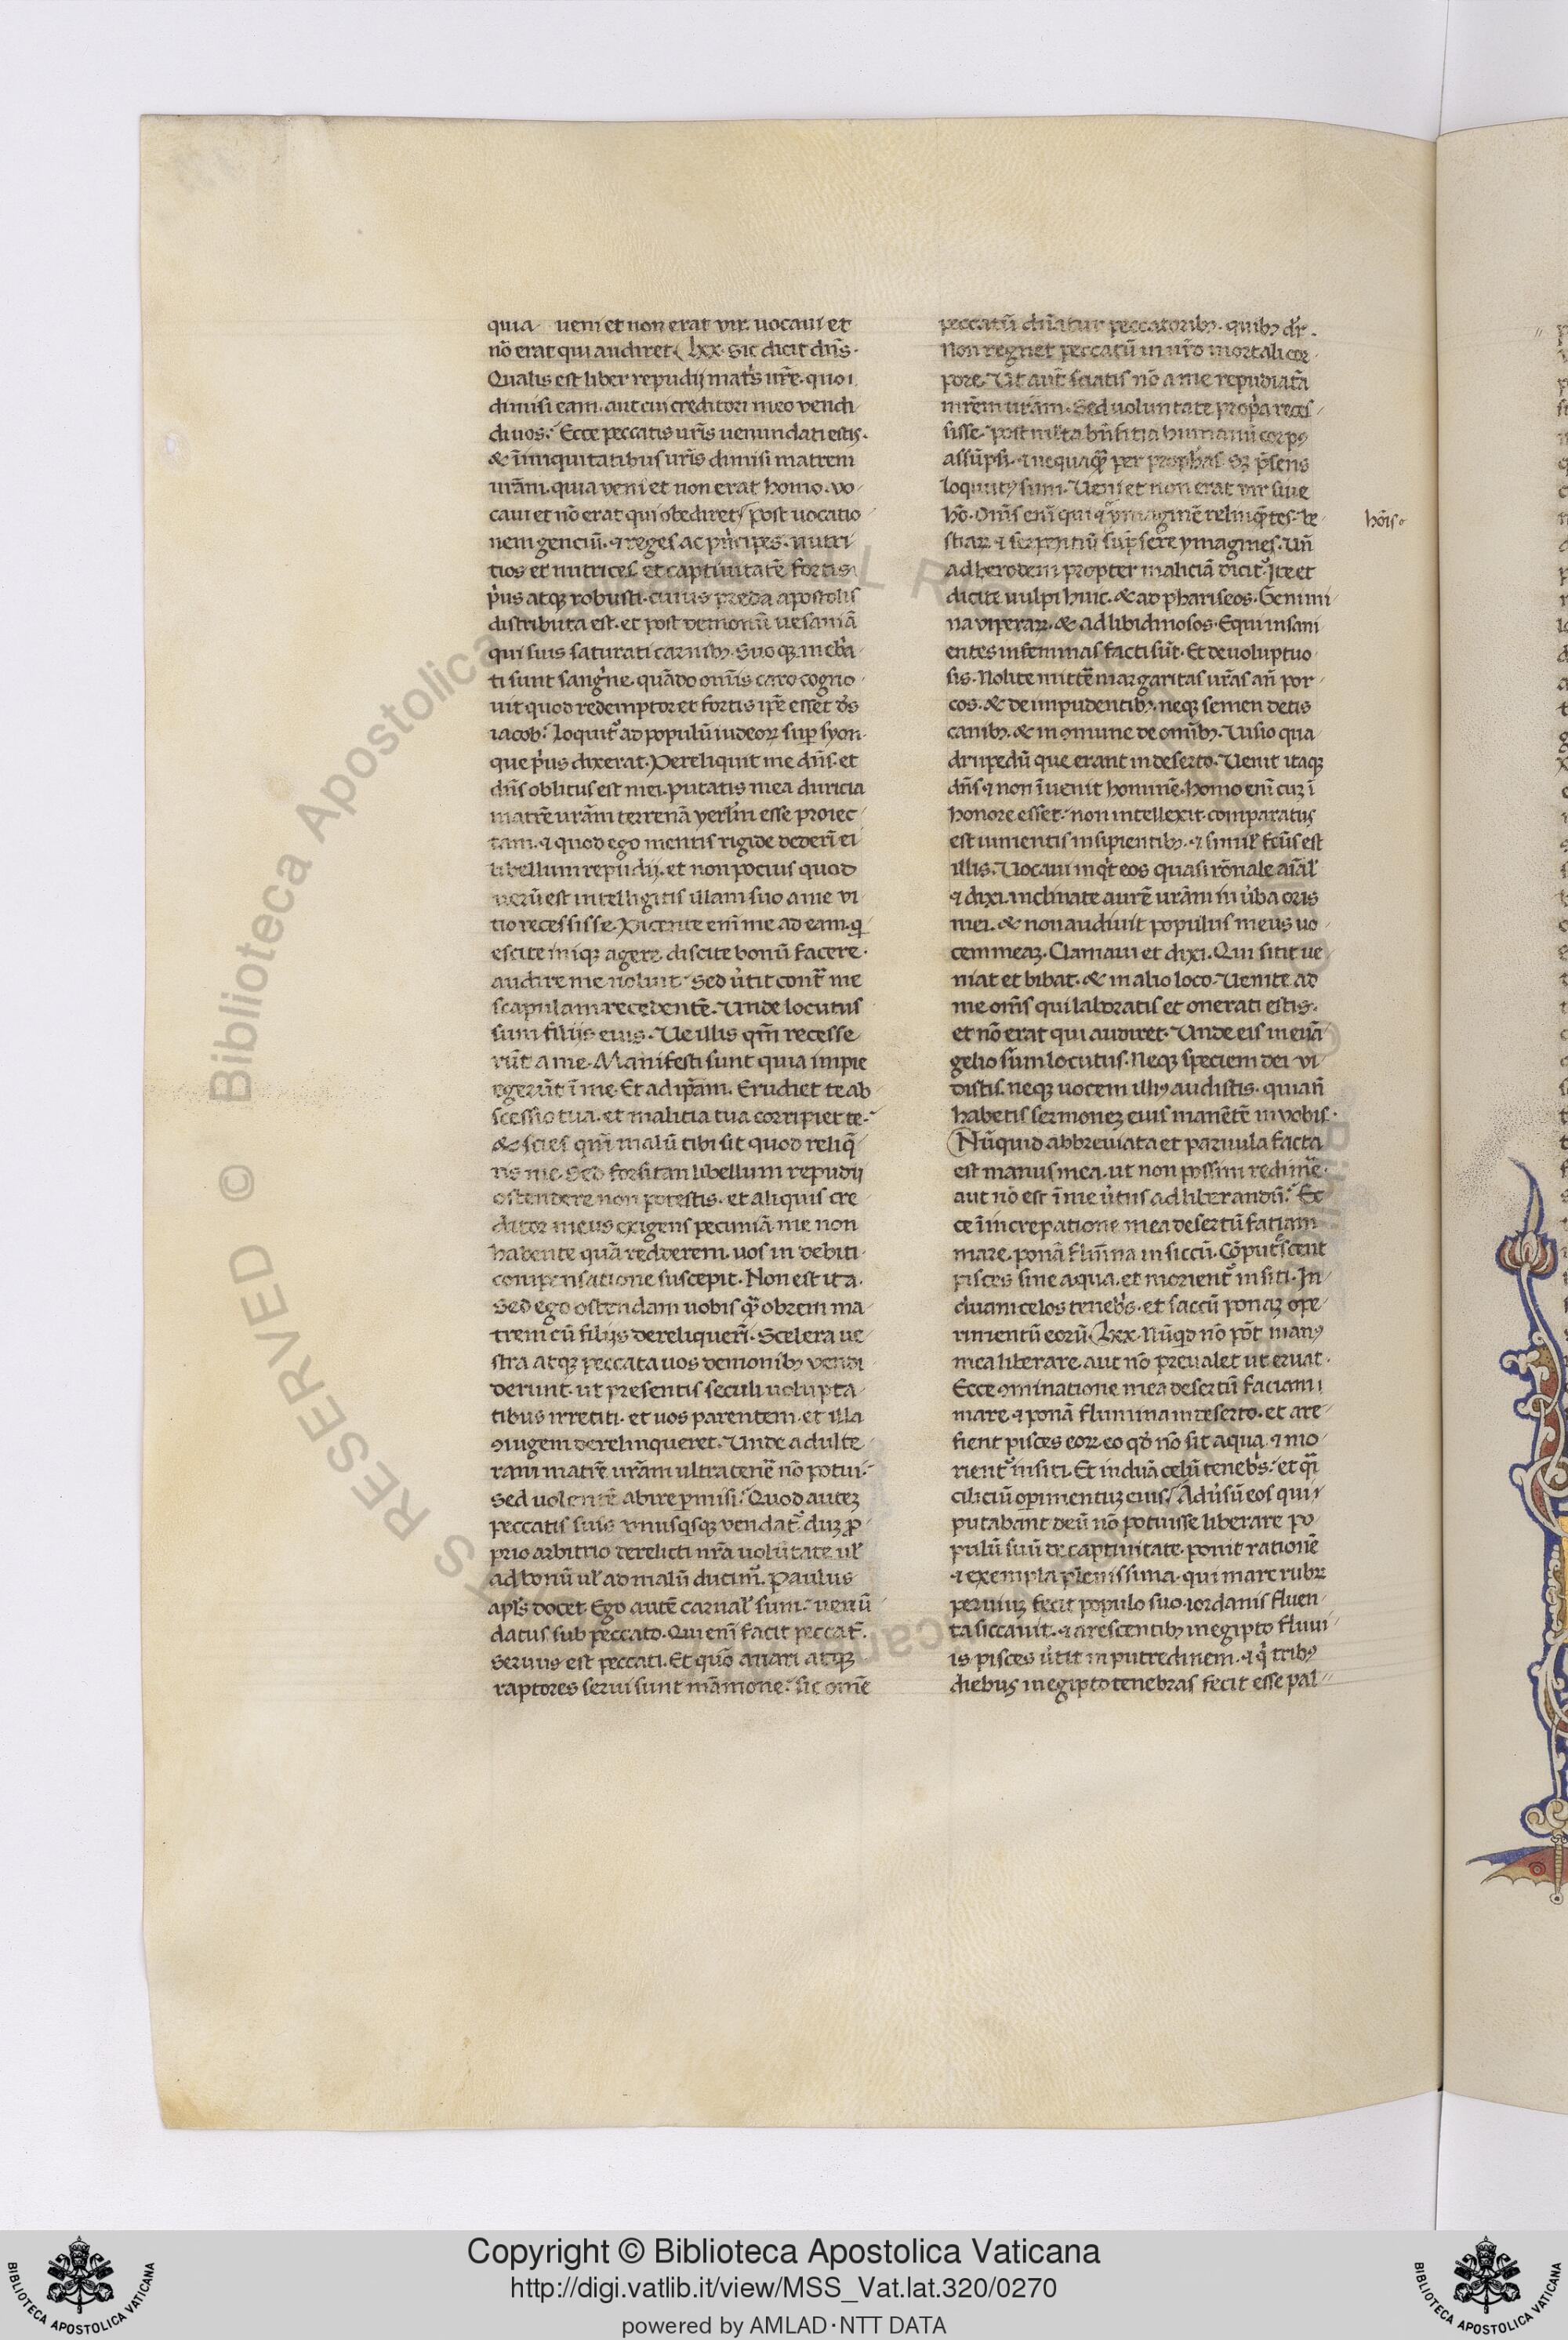 quia ueni et non erat vir. uocaui et
nō erat qui audiret. Lxx. Sic dicit dñs.
Qualis est liber repudij mat̃s ur̃e. quo
dimisi eam. aut cui creditori meo vendi
di uos. Ecce peccatis ur̃is uenundati estis.
& ī iniquitatibus ur̃is dimisi matrem
urām. quia veni et non erat homo. vo
caui et nō erat qui obediret. post uocatio
nem genciū. ⁊ reges ac prīcipes. nutri
tios et nutrices. et captiuitatē fortis
p̄us atqꝫ robusti. cuius preda apostolis
distributa est. et post demonū uesaniā
qui suis saturati carnibꝫ. Suo qꝫ inebr̃a
ti sunt sangr̄ne. quādo omīs caro cogno
uit quod redemptor et fortis ip̄e esset ds̄
iacob. loquit᷑ ad populū iudeoꝝ sup̄ syon.
que pr̄us dixerat. Dereliquit me dñs. et
dñs oblitus est mei. putatis mea duricia
matrē urām terrenā yerl̄m esse proiec
tam. ⁊ quod ego mentis rigide dederī ei
libellum repudij. et non pocius quod
uerū est intelligitis illam suo a me vi
tio recessisse. Dicente enī me ad eam. q̄
escite iniqꝫ agere. discite bonū facere.
audire me noluit. Sed ūtit cont̃ me
scapulam recedentē. Unde locutus
sum filijs eius. Ue illis qm̄ recesse
rūt a me. Manifesti sunt quia impie
egerūt ī me. Et ad ip̄am. Erudiet te ab
scessio tua. et malicia tua corripiet te.
& scies qm̄ malū tibi sit quod reliq̄
ris me. Sed forsitan libellum repudij
ostendere non potestis. et aliquis cre
ditor meus exigens pecuniā me non
habente quā redderem. uos in debiti
compensatione suscepit. Non est ita.
Sed ego ostendam uobis q̄ obrem ma
trem cū filijs dereliquerī. Scelera ue
stra atqꝫ peccata uos demonibꝫ vendi
derunt. ut presentis seculi uolupta
tibus irretiti. et uos parentem. et illa
ꝯiugem derelinqueret. Unde adulte
ram matrē urām ultra tenē nō potui.
Sed uolentē abire p̄misi. Quod autēꝫ
peccatis suis vnusqsqꝫ vendat᷑. dūꝫ ꝓ
prio arbitrio derelicti nr̄a uolūtate ul̄
ad bonū ul̄ ad malū ducim᷑. Paulus
apl̄s docet. Ego autē carnal̄ sum. uenū
datus sub peccato. Qui enī facit peccat̄.
Seruus est peccati. Et quō auari atqꝫ
raptores serui sunt māmone. sic omē
peccatū dn̄atur peccatoribꝫ. quibꝫ dr̄.
Non regnet peccatū in ur̄o mortali cor
pore. Ut aut̄ sciatis nō a me repudiatā
mr̄em urām. Sed uoluntate prop̄a reces
sisse. post ml̄ta bn̄ficia humanū corpꝰ
assūpsi. ⁊ nequaq̄ per proph̄as. sꝫ p̄sens
loquutꝰ sum. Ueni et non erat vir siue
hō. Om̄s enī qui ymaginē relinq̄tes. be
stiaꝝ ⁊ serpentiū sūpsere ymagines. Un̄
ad herodem propter maliciā dicit᷑. Ite et
dicite uulpi huic. & ad phariseos. Genimi
na viperaꝝ. & ad libidinosos. Equi insani
entes in feminas facti sūt. Et de uoluptuo
sis. Nolite mittē margaritas ur̄as an̄ por
cos. & de impudentibꝫ. neqꝫ semen detis
canibꝫ. & in ꝯmune de omībꝫ. Uisio qua
drupedū que erant in deserto. Uenit itaqꝫ
dn̄s ⁊ non īuenit hominē. homo enī cuꝫ ī
honore esset. non intellexit. comparatꝰ
est iumentis insipientibꝫ. ⁊ simil̄ fc̄us est
illis. Uocaui inqt̄ eos quasi rōnale aīal̄
⁊ dixi. inclinate aurē urām in ūba oris
mei. & non audiuit populus meus uo
cem meaꝫ. Clamaui et dixi. Qui sitit ue
niat et bibat. & in alio loco. Uenite ad
me om̄s qui laboratis et onerati estis.
et nō erat qui audiret. Unde eis in euā
gelio sum locutus. Neqꝫ speciem dei vi
distis. neqꝫ uocem illiꝰ audistis. quian̄
habetis sermoneꝫ eius manētē in vobis.
Nūquid abbreuiata et paruula facta
est manus mea. ut non possim redimē.
aut nō est ī me ūtus ad liberandū. Ec
ce ī increpatione mea desertū fatiam
mare. ponā flum̄na in siccū. Cōputrescent
pisces sine aqua. et morient᷑ in siti. In
duam celos tenebr̄s. et saccū ponaꝫ ope
rimentū eorū. Lxx. Nūqd nō pōt manꝰ
mea liberare. aut nō preualet ut eruat.
Ecce ꝯminatione mea desertū faciam
mare. ⁊ ponā flumina in deserto. et are
fient pisces eoꝝ eo qđ nō sit aqua. ⁊ mo
rient᷑ in siti. Et induā celū tenebr̄s. et q̄i
ciliciū opimentuꝫ eius. Adūsū eos qui
putabant deū nō potuisse liberare po
pulū suū de captiuitate. ponit rationē
⁊ exempla plenissima. qui mare rubꝝ
peruiuꝫ fecit populo suo. iordanis fluen
ta siccauit. ⁊ arescentibꝫ in egipto fluui
is pisces ūtit in putredinem. ⁊ q̄ tribꝰ
diebus in egipto tenebras fecit esse pal
hōis
Copyright © Biblioteca Apostolica Vaticana
http://digi.vatlib.it/view/MSS_Vat.lat.320/0270
powered by AMLAD·NTT DATA
BIBLIOTECA APOSTOLICA VATICANA
BIBLIOTECA APOSTOLICA VATICANA